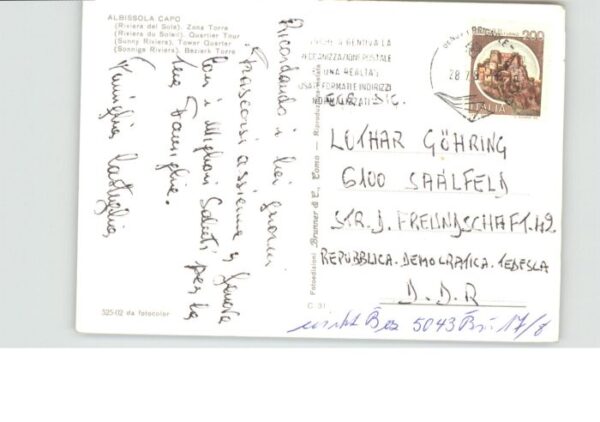 ALBISSOLA CAPO
(Riviera del Sole). Zona Torre
(Riviera du Soleil). Quartier Tour
(Sunny Riviera). Tower Quarter
(Sonnige Riviera). Bezirk Torre
Ricordando i bei giorni
trascorsi assieme a Genova
con i Migliori Saluti per la
tua Famiglia.
Famiglia
325/02 da fotocolor
Fotoedizioni Brunner & C., Como - Riproduzione vietata
C. 31
ANCHE A GENOVA LA
MECCANIZZAZIONE POSTALE
È UNA REALTÀ
USATE FORMATI E INDIRIZZI
NORMALIZZATI
28.7
200
ITALIA
EGR. SIG.
LOTHAR GÖHRING
6100 SAALFELD
STR. D. FREUNDSCHAFT. 42
REPUBBLICA. DEMOCRATICA. TEDESCA
D. D. R
nicht Bez 5043 Br. 17/8